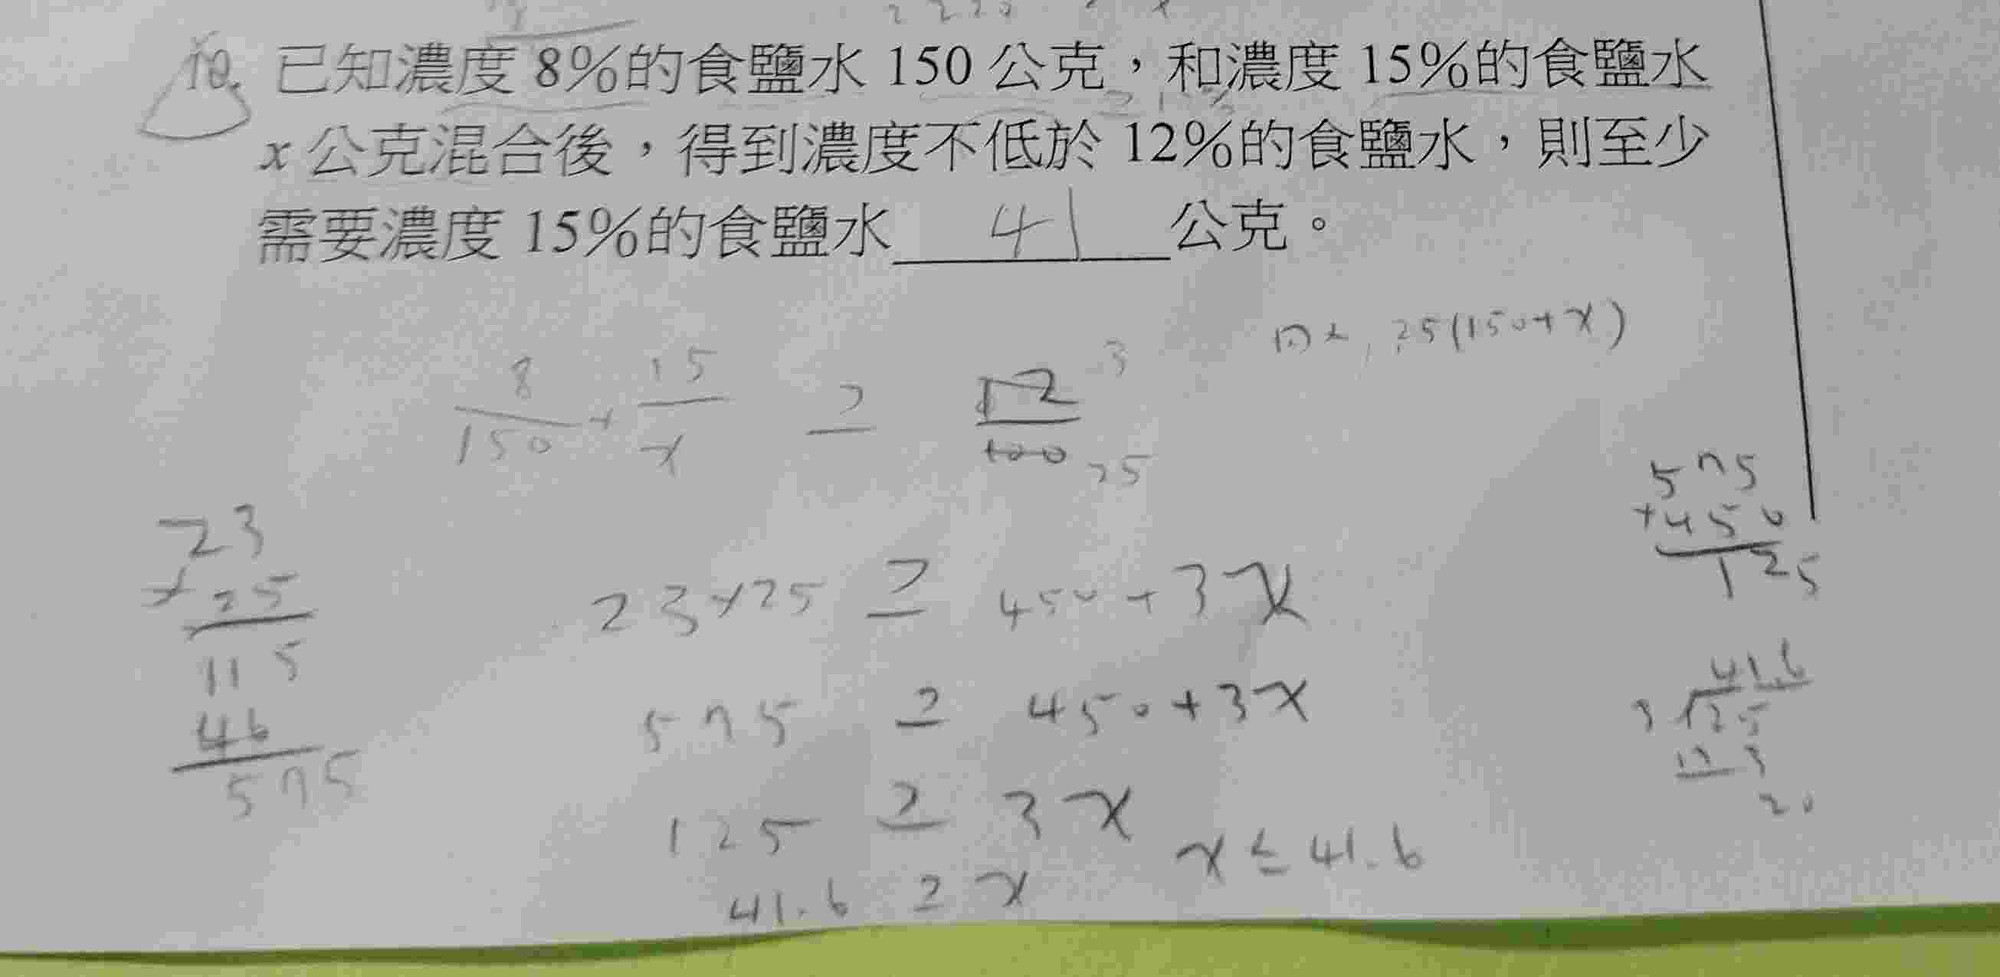 10. 已知濃度 8%的食鹽水 150 公克，和濃度 15%的食鹽水
x 公克混合後，得到濃度不低於 12%的食鹽水，則至少
需要濃度 15%的食鹽水 41 公克。
25(150+x)
8/150 + 15/x ≥ 12/100 3 25
23
×25
115
46
575
23×25 ≥ 450+3x
575 ≥ 450+3x
125 ≥ 3x
41.6 ≥ x x≤41.6
575
+450
125
41.6
3 125
12 3
20